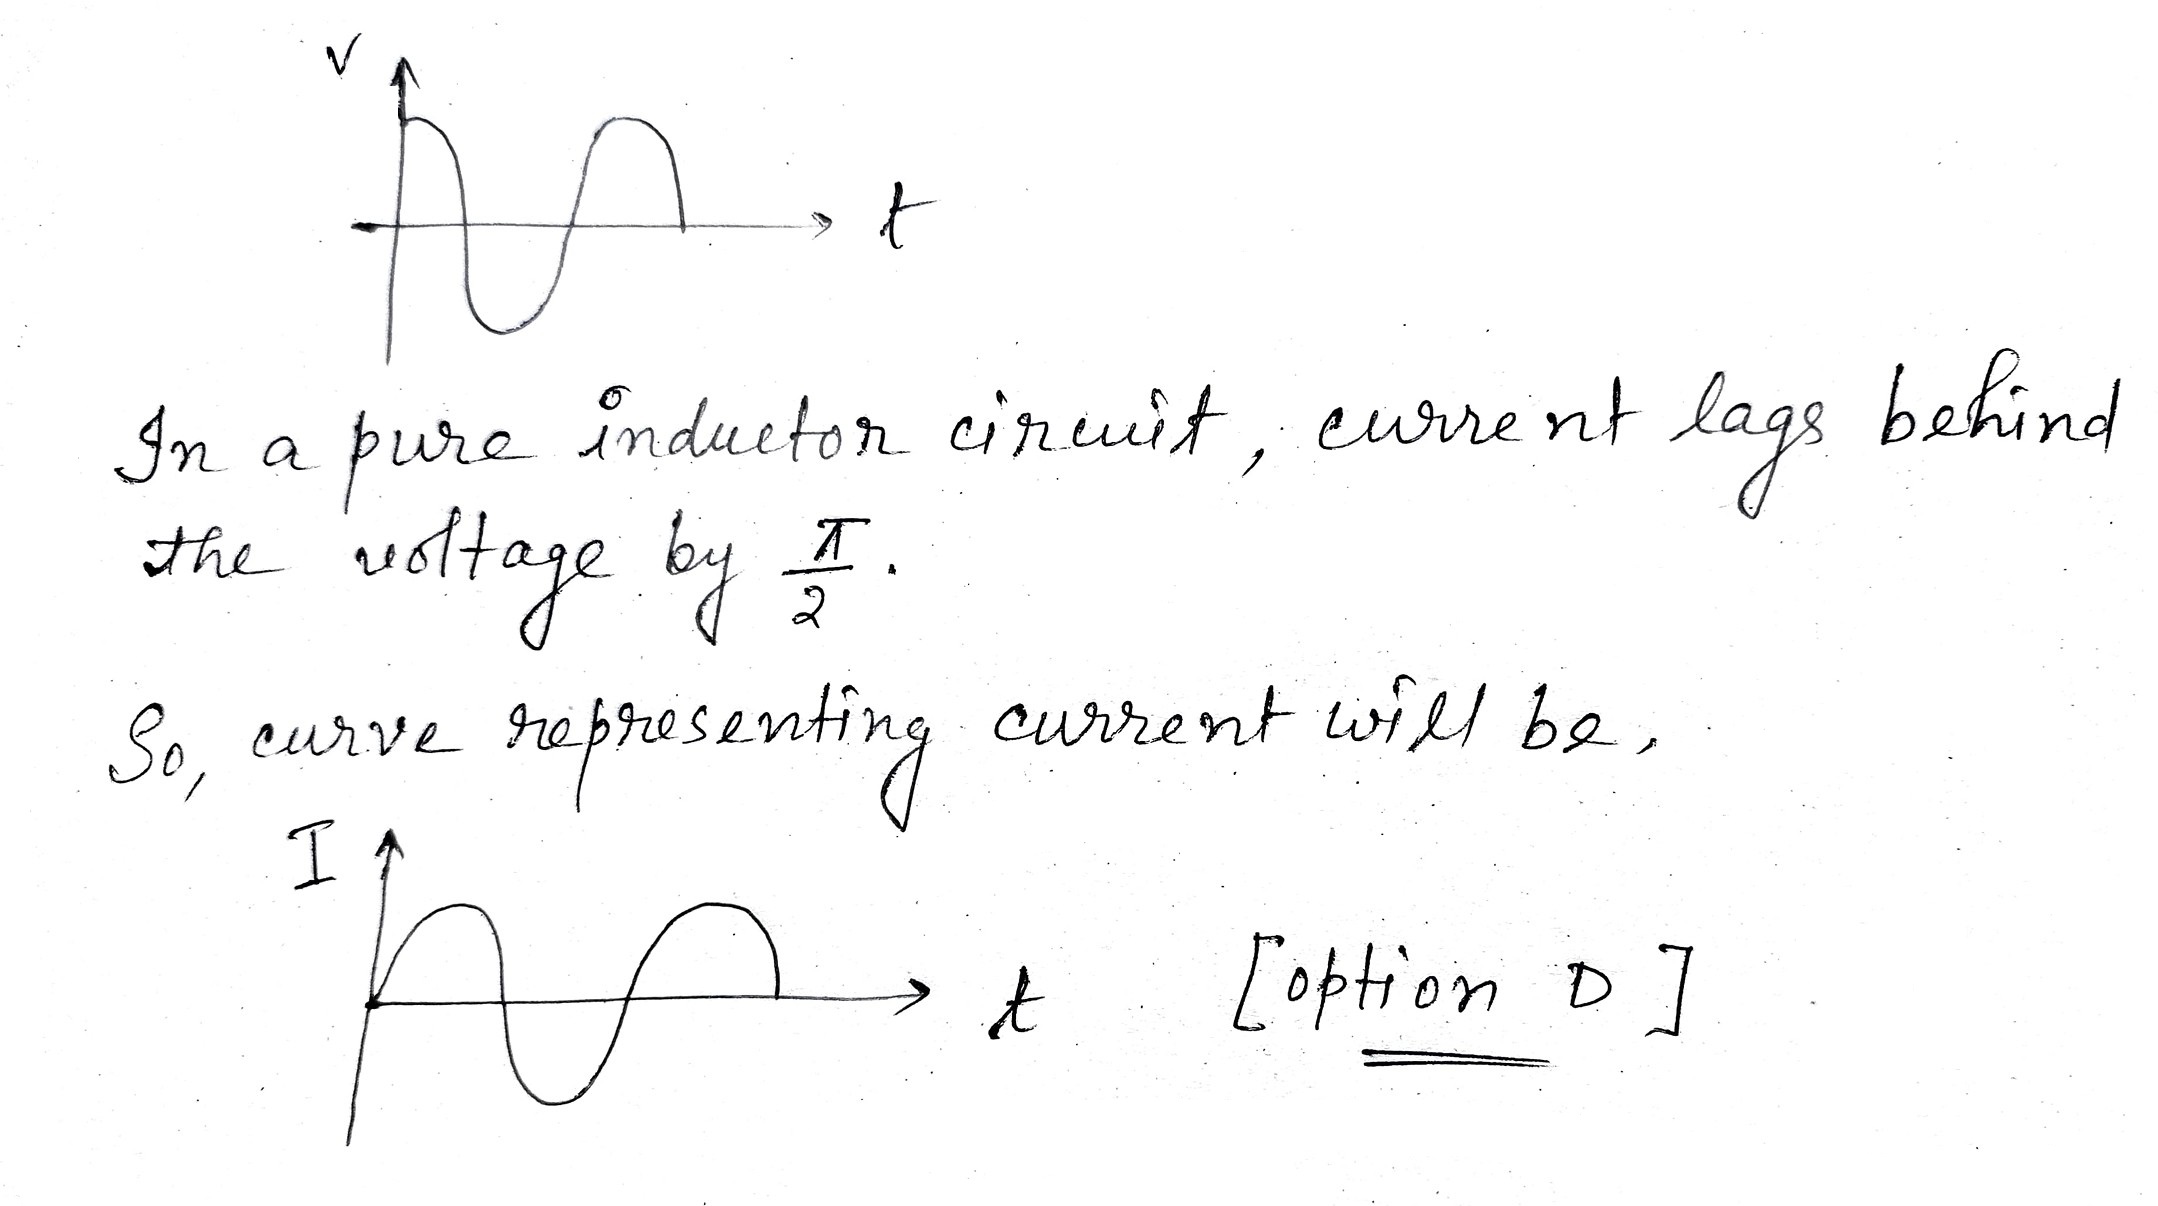 V
t
In a pure inductor circuit, current lags behind
the voltage by π/2.
So, curve representing current will be,
I
t [option D]